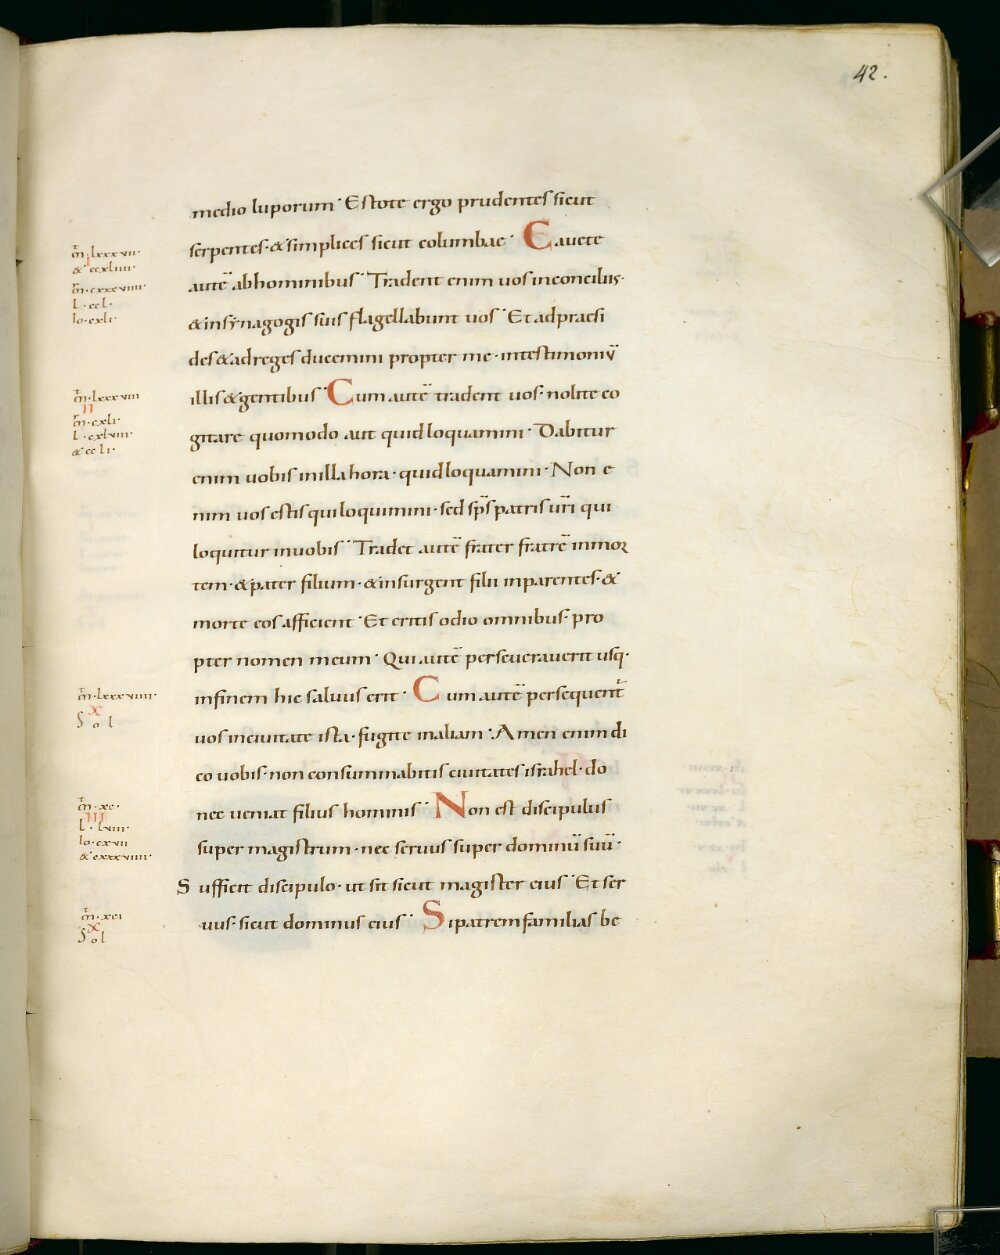 42.
medio luporum· Estote ergo prudentes sicut
serpentes·&simplices sicut columbae· Cauete
autē abhominibus· Tradent enim uos inconciliis·
&insynagogis suis flagellabunt uos· Et adpraesi
des&adreges ducemini propter me·intestimoniū
illis&gentibus· Cum autē tradent uos·nolite co
gitare quomodo aut quid loquamini· Dabitur
enim uobis inilla hora·quid loquamini· Non e
nim uos estis qui loquimini·sed sp̄s patris ur̄i qui
loquitur inuobis· Tradet autē frater fratrē inmor
tem·&pater filium·&insurgent filii inparentes·&
morte eos afficient· Et eritis odio omnibus·pro
pter nomen meum· Qui autē perseuerauerit usq·
infinem hic saluus erit· Cum autē persequent̄
uos inciuitate ista·fugite inaliam· Amen enim di
co uobis·non consummabitis ciuitates israhel·do
nec ueniat filius hominis· Non est discipulus
super magistrum·nec seruus super dominū suū·
Sufficit discipulo·ut sit sicut magister eius· Et ser
uus·sicut dominus eius· Si patremfamilias be
m̄·lxxxvii·
I
& ccxliiii·
m̄·cxxxviiii·
l·ccl·
Io·cxli·
m̄·lxxxviii
II
m̄·cxli·
l·cxlviii·
& ccli·
m̄·lxxxviiii·
X
Sol
m̄·xc·
III
l·lviii·
Io·cxvii
& cxxxviiii·
m̄·xci
X
Sol